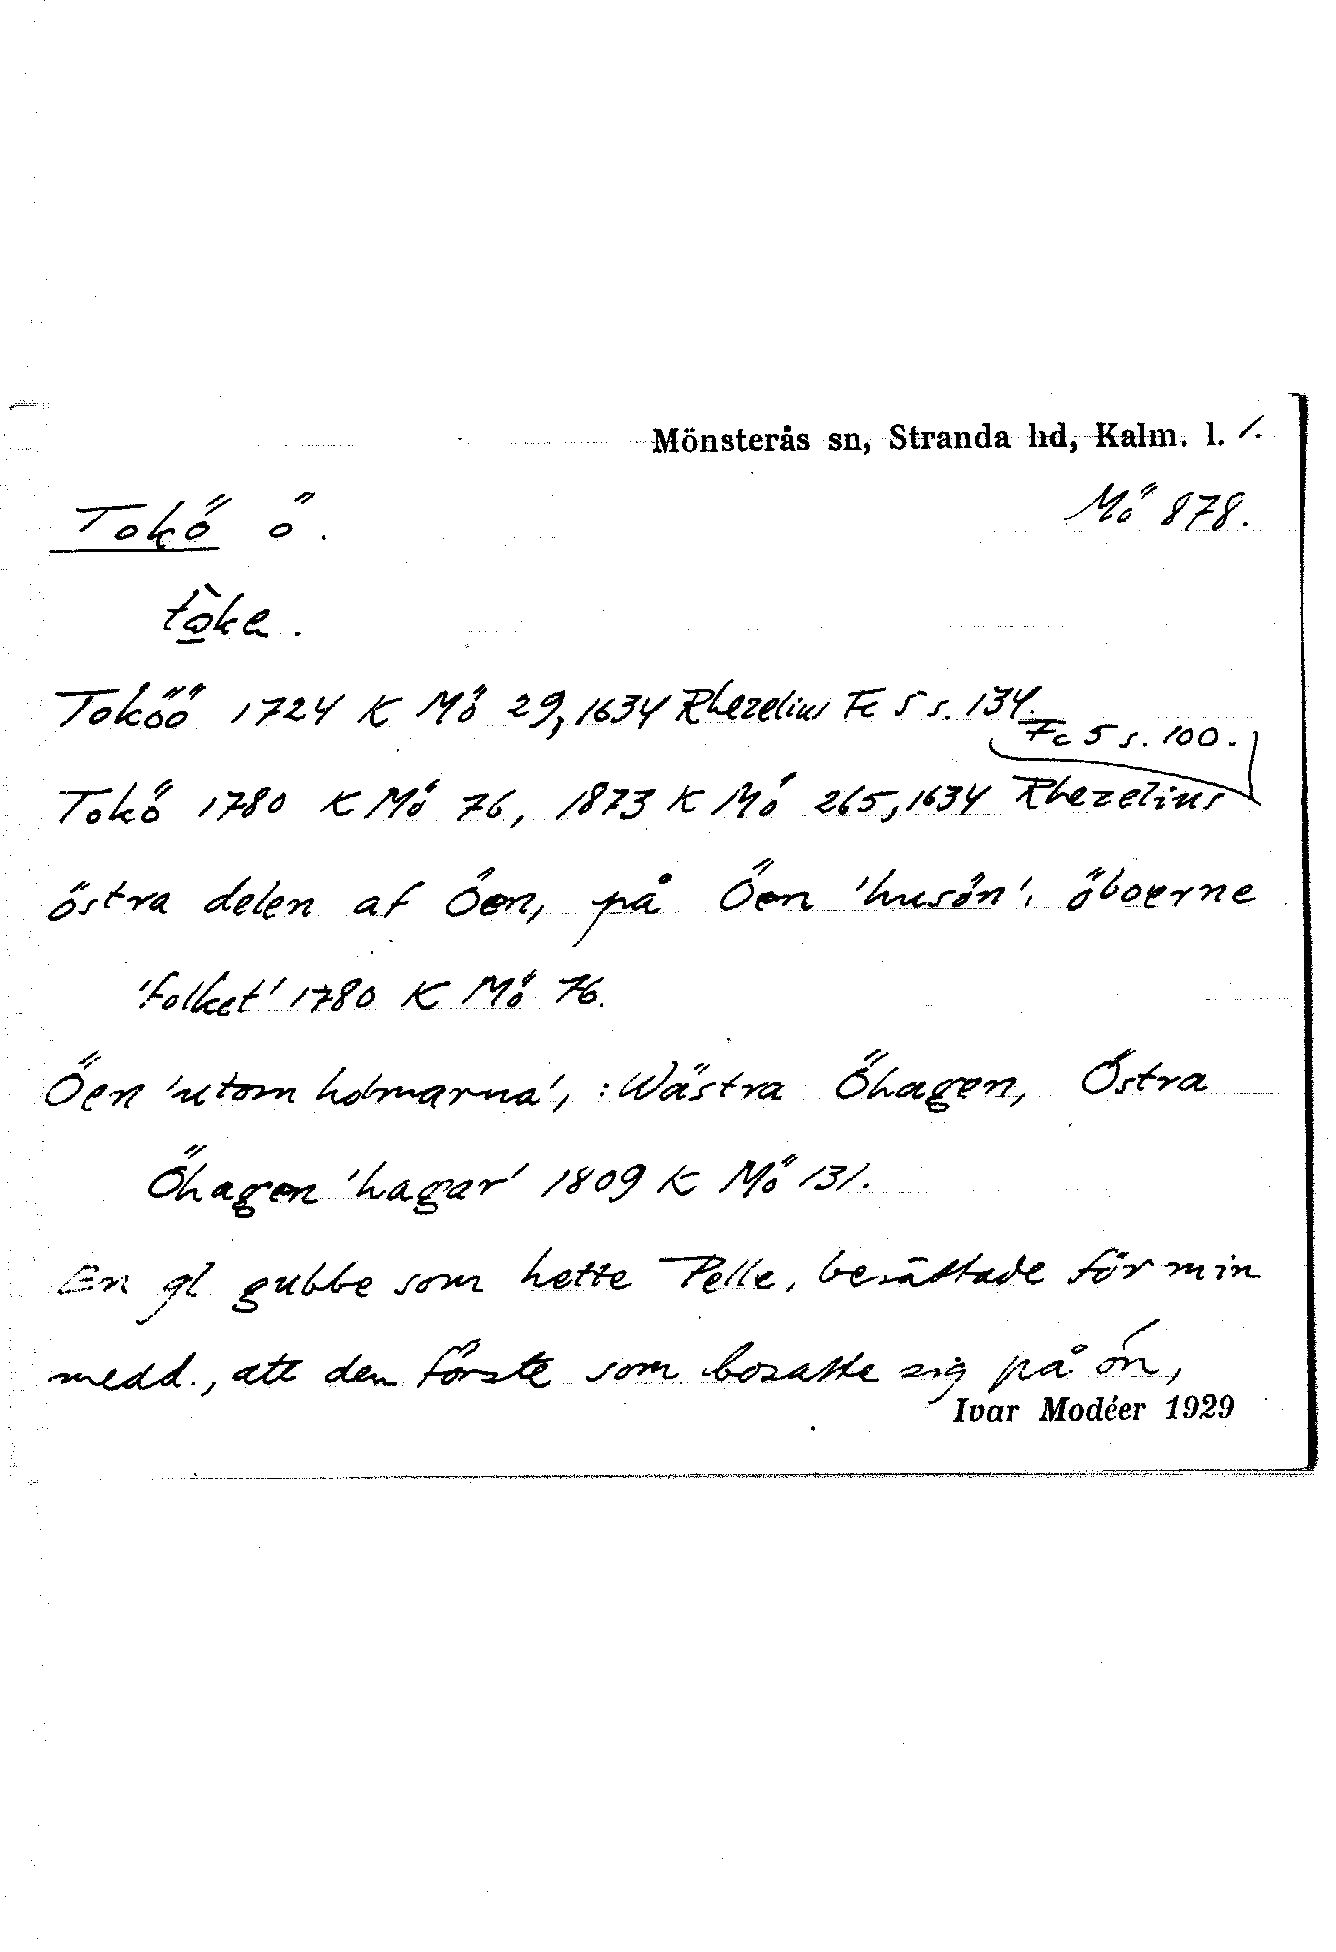 Mönsterås sn, Stranda hd, Kalm. l. 1.
Tokö ö. Mö 878.
tòke.
Toköö 1724 K Mö 29, 1634 Rhezelius Fc 5 s. 134.
Fc 5 s. 100.
Tokö 1780 K Mö 76, 1873 K Mö 265, 1634 Rhezelius
östra delen af Öen, på Öen 'husön', öboerne
'folket' 1780 K Mö 76.
Öen 'utom holmarna', : Wästra Öhagen, Östra
Öhagen 'hagar' 1809 K Mö 131.
En gl gubbe som hette Pelle, berättade för min
medd., att den förste som bosatte sig på ön,
Ivar Modéer 1929